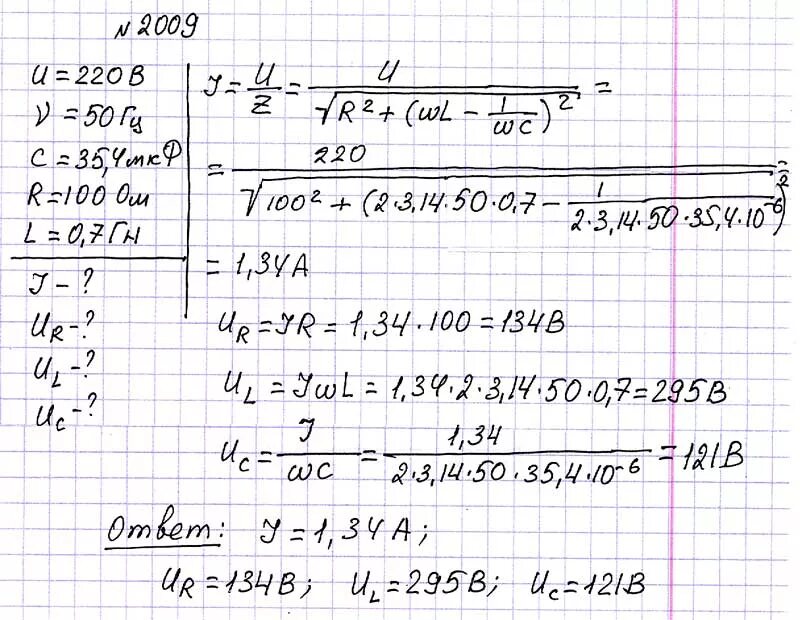 № 2009
U = 220 В
ν = 50 Гц
C = 35,4 мкФ
R = 100 Ом
L = 0,7 Гн
J - ?
U_R - ?
U_L - ?
U_C - ?
J = U/Z = U/√(R² + (ωL - 1/ωC)²) =
= 220/√(100² + (2·3,14·50·0,7 - 1/(2·3,14·50·35,4·10⁻⁶))²) =
= 1,34 А
U_R = JR = 1,34·100 = 134 В
U_L = JωL = 1,34·2·3,14·50·0,7 = 295 В
U_C = J/ωC = 1,34/(2·3,14·50·35,4·10⁻⁶) = 121 В
Ответ: J = 1,34 А;
U_R = 134 В; U_L = 295 В; U_C = 121 В